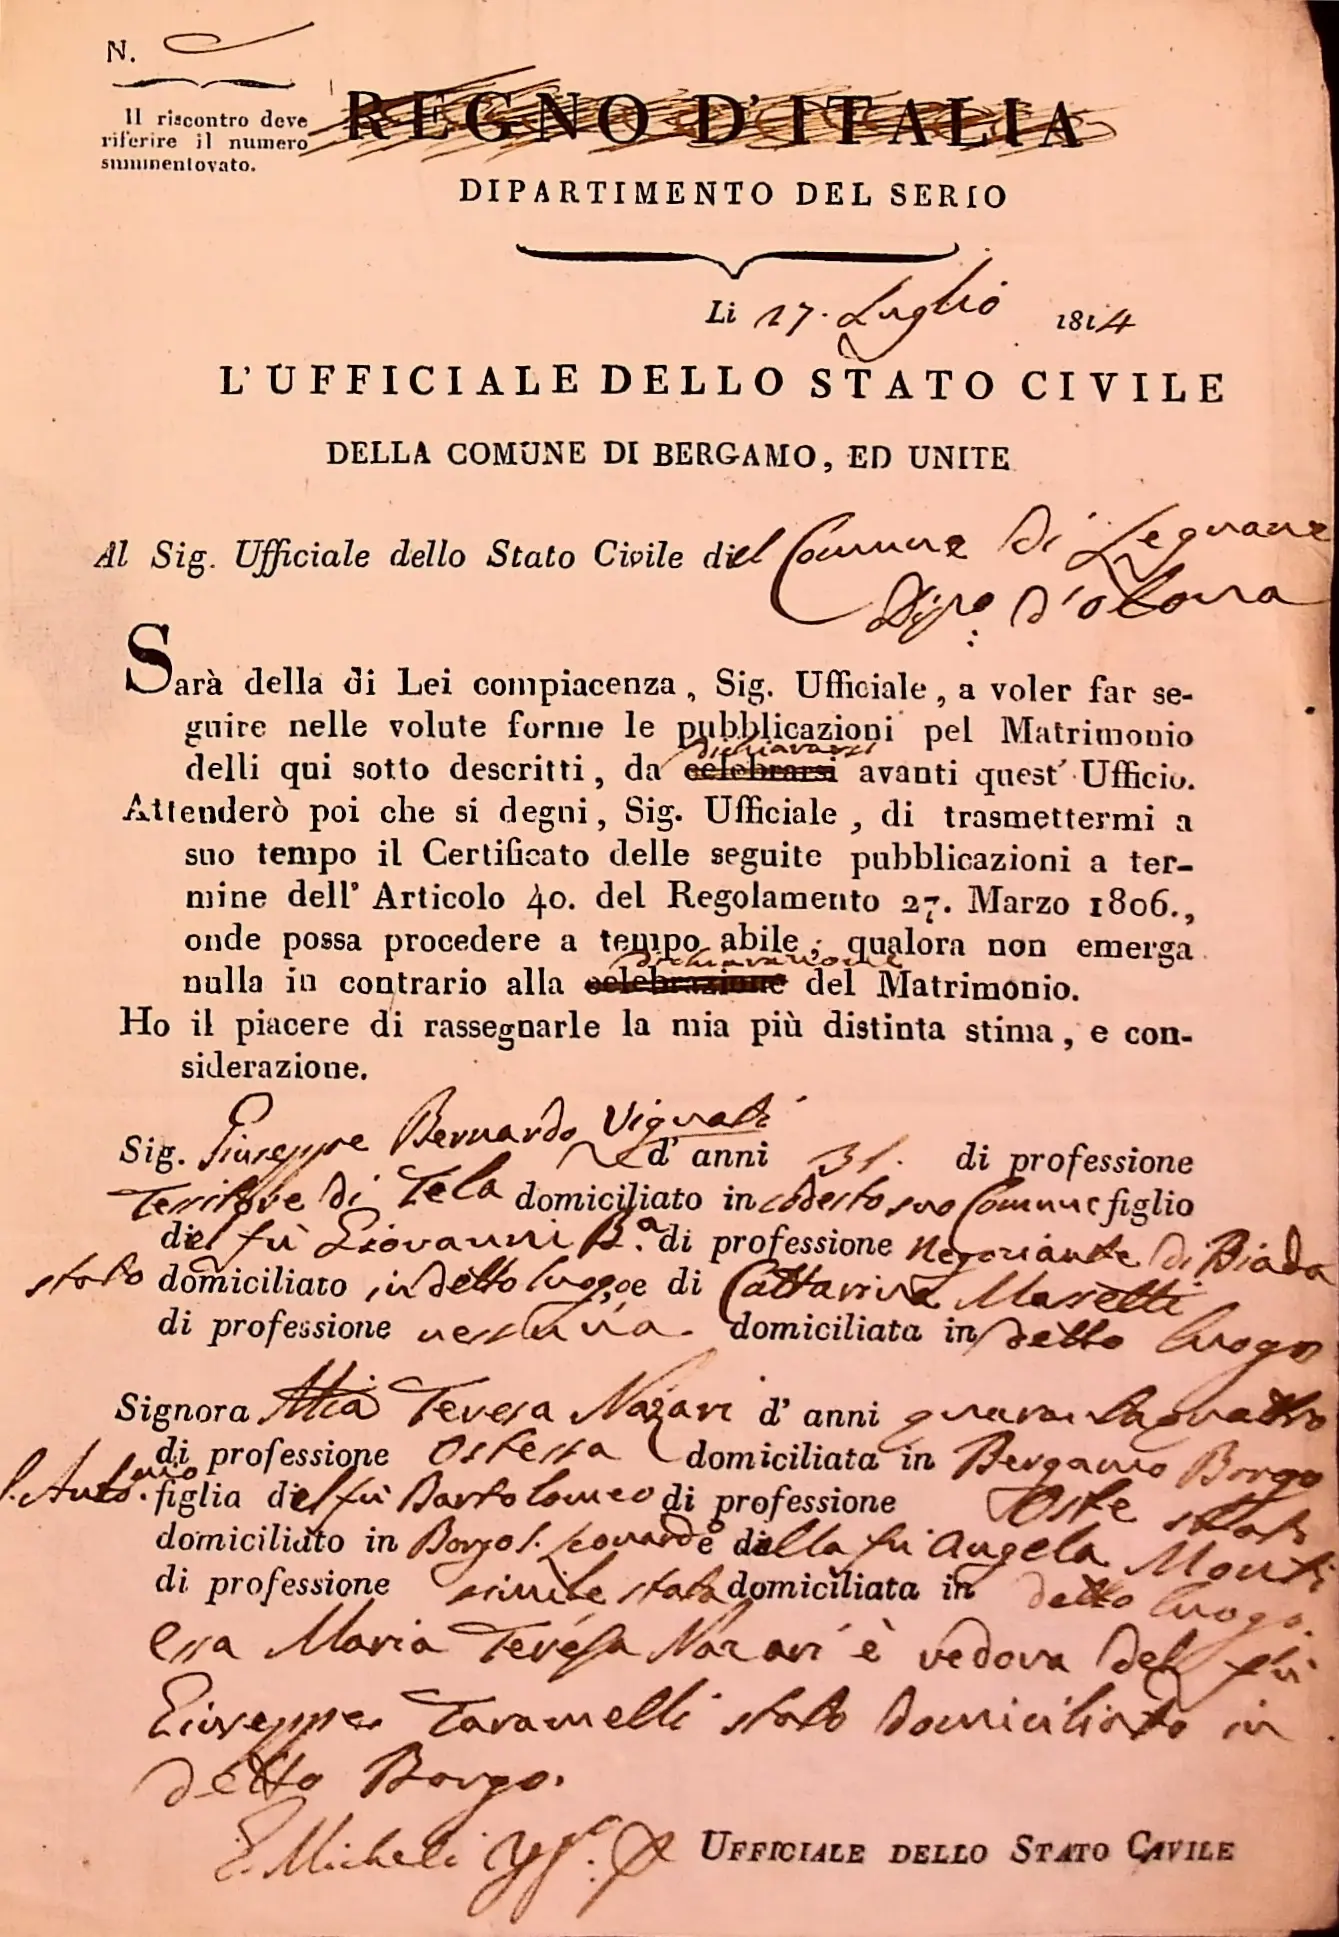 N.
Il riscontro deve
riferire il numero
summentovato.
REGNO D'ITALIA
DIPARTIMENTO DEL SERIO
Li 27. Luglio 1814
L'UFFICIALE DELLO STATO CIVILE
DELLA COMUNE DI BERGAMO, ED UNITE
Al Sig. Ufficiale dello Stato Civile del Comune di Legnano
Dip.o d'olona
Sarà della di Lei compiacenza, Sig. Ufficiale, a voler far se-
guire nelle volute forme le pubblicazioni pel Matrimonio
dichiararsi
delli qui sotto descritti, da celebrarsi avanti quest' Ufficio.
Attenderò poi che si degni, Sig. Ufficiale, di trasmettermi a
suo tempo il Certificato delle seguite pubblicazioni a ter-
mine dell' Articolo 40. del Regolamento 27. Marzo 1806.,
onde possa procedere a tempo abile; qualora non emerga
dichiarazione
nulla in contrario alla celebrazione del Matrimonio.
Ho il piacere di rassegnarle la mia più distinta stima, e con-
siderazione.
Sig. Giuseppe Bernardo Vignati d' anni 31. di professione
di Tela domiciliato in codesto suo Comune figlio
del fù Giovanni B.a di professione negoziante di Biada
stato domiciliato in detto luogo e di Cattarina Masetti
di professione nessuna. domiciliata in detto luogo
Signora Teresa Nazari d' anni quarantaquattro
di professione Ostessa domiciliata in Bergamo Borgo
S. Antonio. figlia del fù Bartolomeo di professione Oste stato
domiciliato in Borgo S. Leonardo e della fù Angela Monti
di professione simile stata domiciliata in detto luogo.
Essa Maria Teresa Nazari è vedova del fù
Giuseppe Taramelli stato domiciliato in
detto Borgo.
G. Micheli UFFICIALE DELLO STATO CIVILE